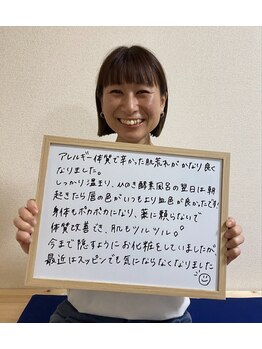 アレルギー体質で辛かった肌荒れがかなり良く
なりました。
しっかり温まり、ひのき酵素風呂の翌日は朝
起きたら唇の色がいつもより血色が良かったです!
身体もポカポカになり、薬に頼らないで
体質改善でき、肌もツルツル。
今まで隠すようにお化粧をしていましたが
最近はスッピンでも気にならなくなりました